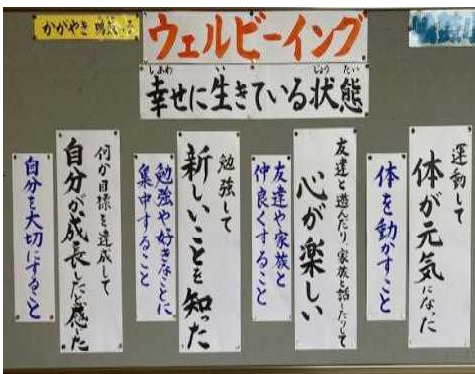 かがやき 鴨気っ子
ウェルビーイング
しあわ い じょう たい
幸せに生きている状態
運動して
体が元気になった
体を動かすこと
友達と遊んだり、家族と話したりして
心が楽しい
友達や家族と
仲良くすること
勉強して
新しいことを知った
勉強や好きなことに
集中すること
何か目標を達成して
自分が成長したと感じた
自分を大切にすること